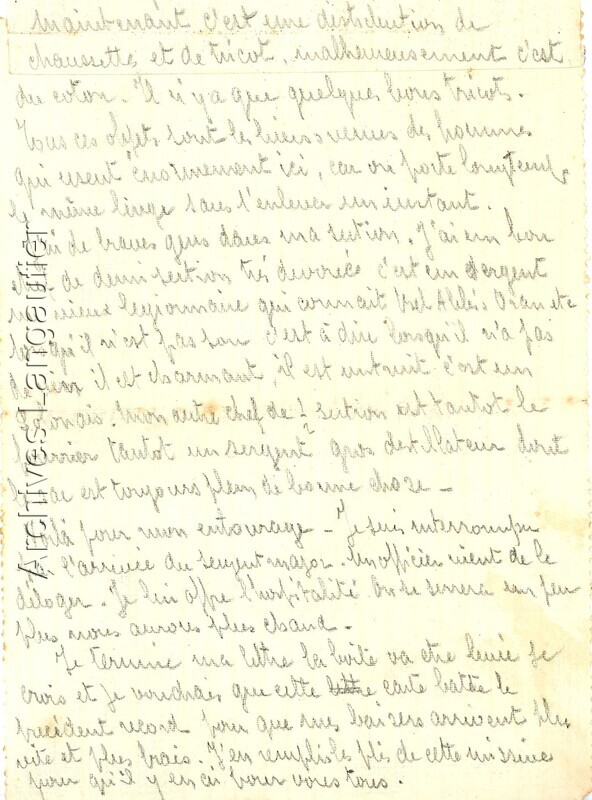 Maintenant c'est une distribution de
chaussette et de tricot, malheureusement c'est
du coton. Il n'y a que quelques bons tricots.
Tous ces objets sont les biens venues des hommes
qui usent énormement ici, car on porte longtemps
le même linge sans l'enlever un instant.
J'ai de braves gens dans ma section. J'ai un bon
chef de demi section très devoué c'est un sergent
vieux legionnaire qui connait Bel Abbès Oran etc
lorsqu'il n'est pas son c'est à dire lorsqu'il n'a pas
de il et charmant, il est intruit c'est un
Lyonais. Mon autre chef de 1/2 section est tantot le
tantot un sergent gros distillateur dont
le sac est toujours plein de bonne chose -
Voilà pour mon entourage - Je suis interrompu
par l'arrivée du sergent major. Un officier vient de le
déloger. Je lui offre l'hospitalité. On se serrera un peu
plus nous aurons plus chaud -
Je termine ma lettre la boite va etre levée je
crois et je voudrais que cette lettre carte batte le
precident record pour que mes baisers arrivent plus
vite et plus frais. J'en remplis les plis de cette missive
pour qu'il y en ai pour vous tous.
Archives1-singarlier